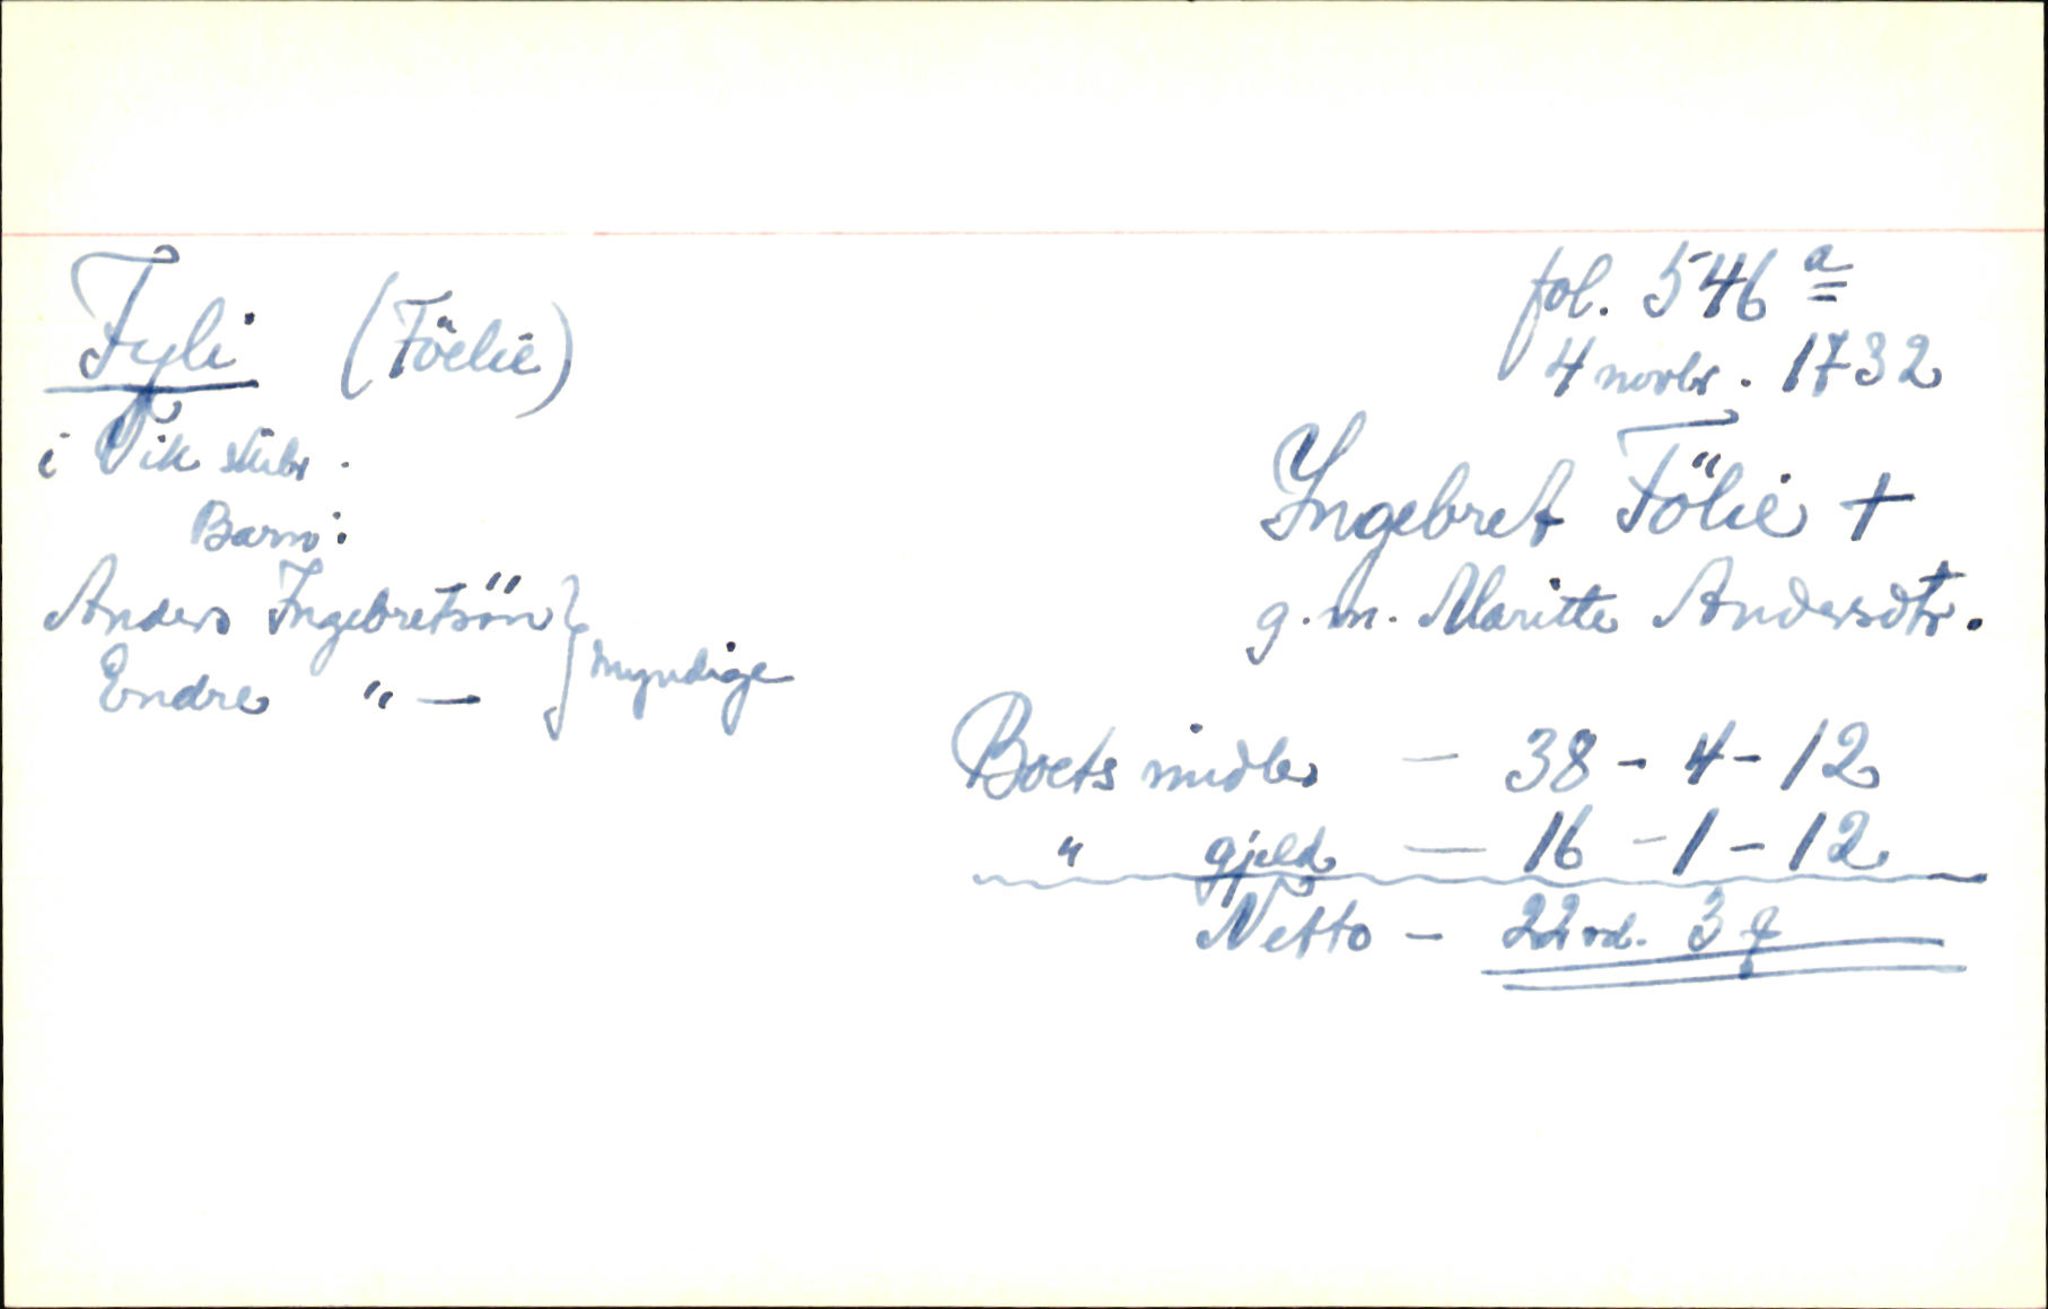 Fyli (Föelie)
i Vik skibr.
Barn:
Anders Ingebretsön } myndige
Endre " —
fol. 546 a
4 novbr. 1732
Ingebret Fölie +
g.m. Maritte Andersdtr.
Boets midler — 38 - 4 - 12
" gjeld — 16 - 1 - 12
Netto - 22 rd. 3